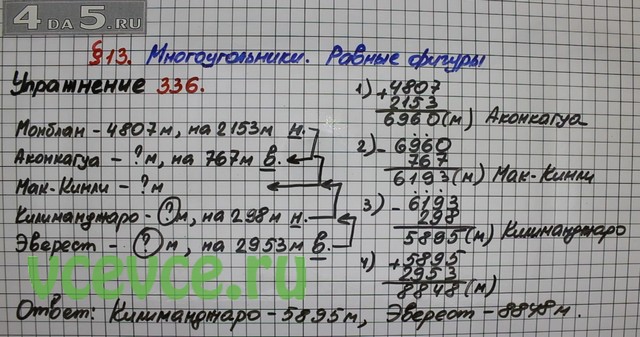 4 DA 5.RU
§13. Многоугольники. Равные фигуры
Упражнение 336.
Монблан - 4807м, на 2153м н.
Аконкагуа - ?м, на 767м в.
Мак-Кинли - ?м
Килиманджаро - ?м, на 298м н.
Эверест - ?м, на 2953м в.
1) +4807
2153
6960(м) Аконкагуа
2) -6960
767
6193(м) Мак-Кинли
3) -6193
298
5895(м) Килиманджаро
4) +5895
2953
8848(м)
vcevce.ru
Ответ: Килиманджаро - 5895м, Эверест - 8848м.